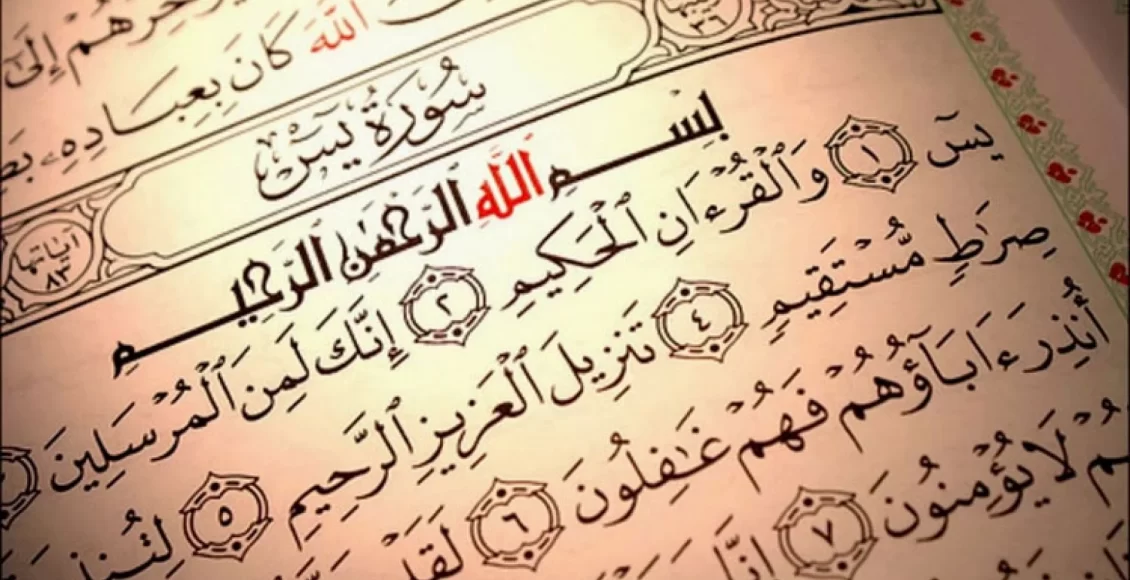 خِّرُهُمْ إِلَىٰٓ
ٱللَّهَ كَانَ بِعِبَادِهِۦ
٣٦
سُورَةُ يسٓ
آيَاتُهَا ٨٣
بِسْمِ ٱللَّهِ ٱلرَّحْمَٰنِ ٱلرَّحِيمِ
يسٓ ١ وَٱلْقُرْءَانِ ٱلْحَكِيمِ ٢ إِنَّكَ لَمِنَ ٱلْمُرْسَلِينَ
صِرَٰطٍ مُّسْتَقِيمٍ ٤ تَنزِيلَ ٱلْعَزِيزِ ٱلرَّحِيمِ ٥
أُنذِرَ ءَابَآؤُهُمْ فَهُمْ غَٰفِلُونَ ٦ لَقَدْ
هُمْ لَا يُؤْمِنُونَ ٧ إِنَّا